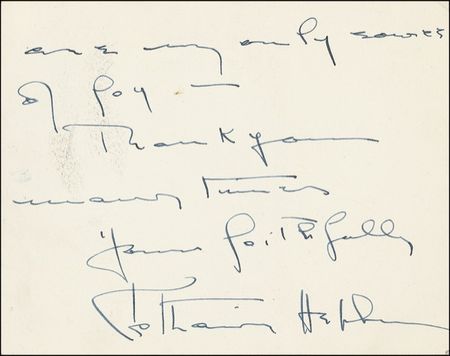 are my only sources
of joy —
Thank you
many times
Yours faithfully
Katharine Hepburn